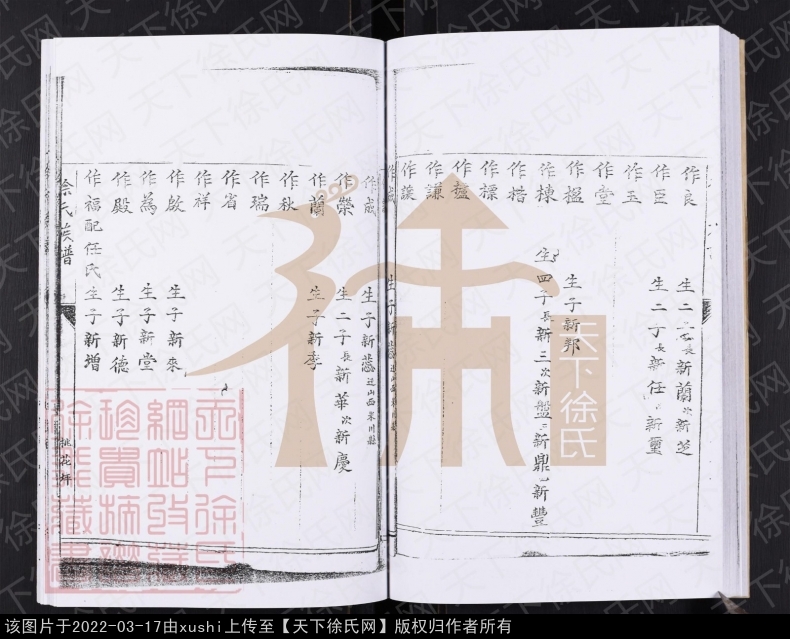 作良 生二子長新蘭次新芝
作臣 生二子長新任次新璽
作玉
作堂
作楹 生子新邦
作棟 生四子長新三次新盤三新鼎四新豐
作楷
作標
作楹
作謙
作謨
作成 生子新蕊
作成 生子新蕊迁山西眾川縣
作榮 生二子長新華次新慶
作蘭 生子新李
作秋
作瑞
作省
作祥
作啟 生子新來
作為 生子新堂
作殿 生子新德
作福配任氏 生子新增
徐氏族譜
桃花坪
天下徐氏
天下徐氏網站收錄珍貴摘譜徐裴藏書
天下徐氏网
该图片于2022-03-17由xushi上传至【天下徐氏网】版权归作者所有